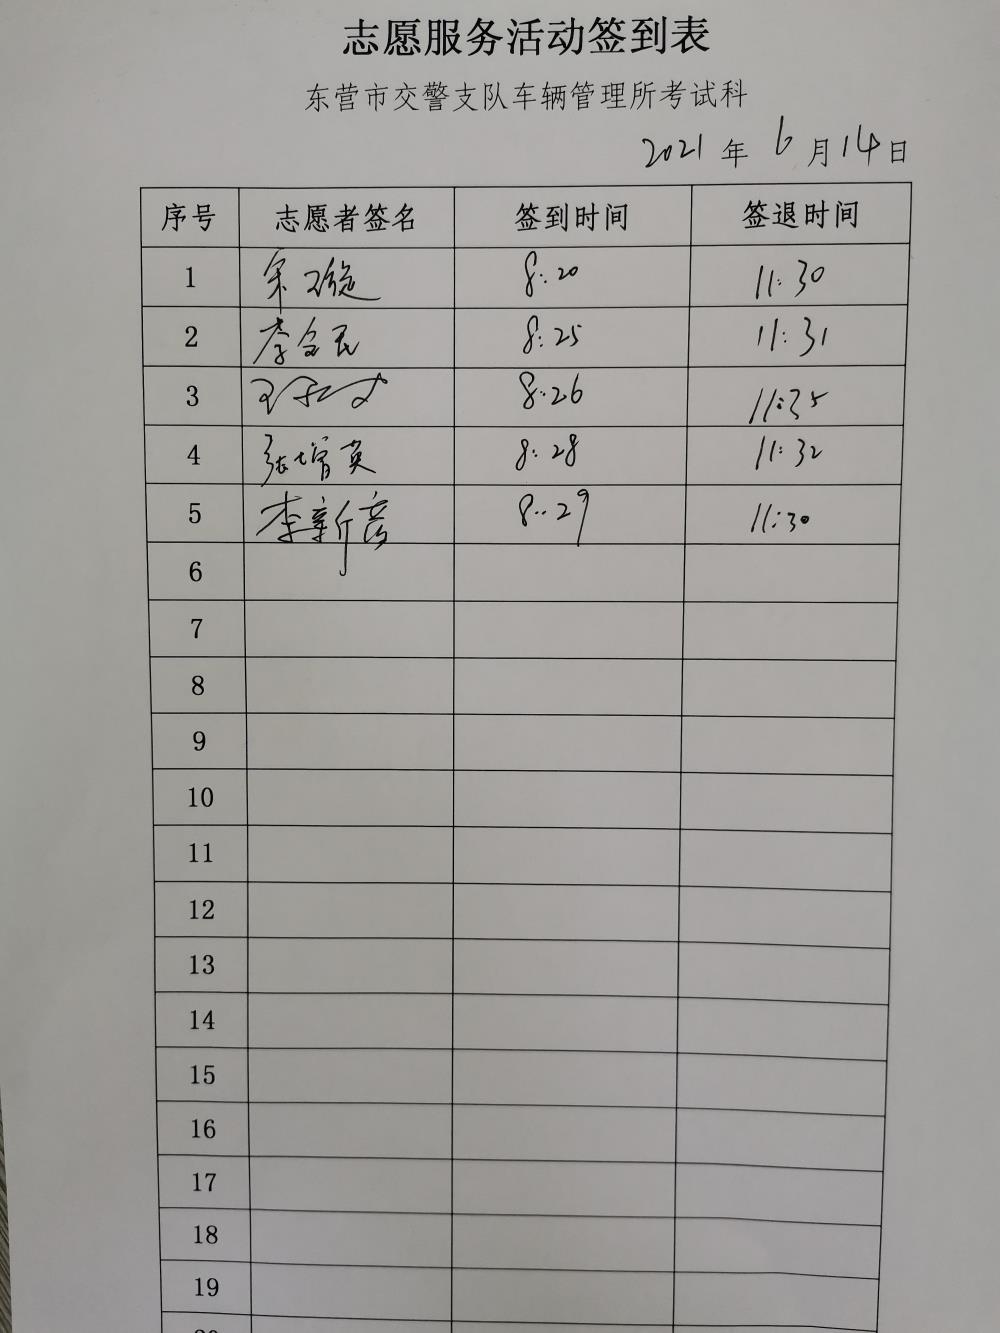 志愿服务活动签到表
东营市交警支队车辆管理所考试科
2021 年 6 月 14 日
序号 志愿者签名 签到时间 签退时间
1 8:20 11:30
2 李 民 8:25 11:31
3 8:26 11:35
4 张增英 8:28 11:32
5 李新 8:29 11:30
6
7
8
9
10
11
12
13
14
15
16
17
18
19